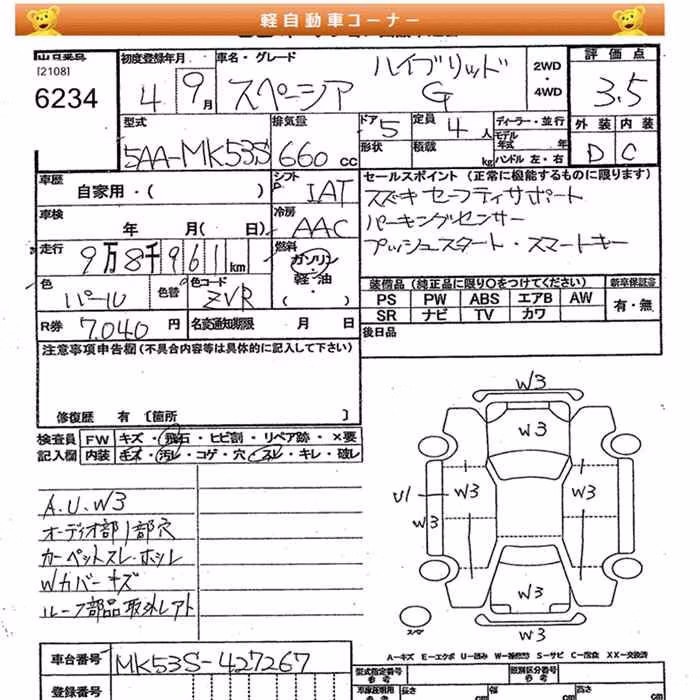 軽自動車コーナー
[2108]
6234
初度登録年月
4 9月
車名・グレード
スペーシア ハイブリッド G
2WD
・
4WD
評価点
3.5
型式
5AA-MK53S
排気量
660 cc
ドア 5
定員 4 人
形状
積載 kg
ディーラー・並行
モデル年式 年
ハンドル 左・右
外装 内装
D C
車歴
自家用・( )
シフト
IAT
車検
年 月( 日)
冷房
AAC
走行
9万8千961km
燃料
ガソリン
・
軽・油
( ・ )
色
パール
色替
色コード
ZVR
R券 7,040 円
名変通知期限 月 日
セールスポイント (正常に機能するものに限ります)
スズキセーフティサポート
パーキングセンサー
プッシュスタート・スマートキー
装備品 (純正品に限り○をつけてください)
新車保証書
PS PW ABS エアB AW
SR ナビ TV カワ
有・無
後日品
注意事項申告欄 (不具合内容等は具体的に記入して下さい)
修復歴 有 [箇所 ]
検査員
記入欄
FW キズ・飛石・ヒビ割・リペア跡・×要
内装 キズ・汚レ・コゲ・穴・スレ・キレ・破レ
A.U.W3
オーディオ部1部穴
カーペットスレ・ホツレ
Wカバーキズ
ルーフ部品取外しアト
W3
W3
U1
W3
W3
W3
W3
W3
スペア
A-キズ E-エクボ U-凹み W-補修跡 S-サビ C-腐食 XX-交換済
車台番号 MK53S-427267
登録番号
型式指定番号
参考
類別区分番号
参考
車庫証明用
参考
長さ cm
幅 cm
高さ cm